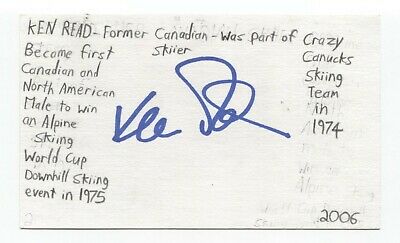 KEN READ - Former Canadian - Was part of Crazy
skiier
Canucks
Skiing
Team
in
1974
Became first
Canadian and
North American
Male to win
an Alpine
Skiing
World Cup
Downhill Skiing
event in 1975
Ken Read
2006